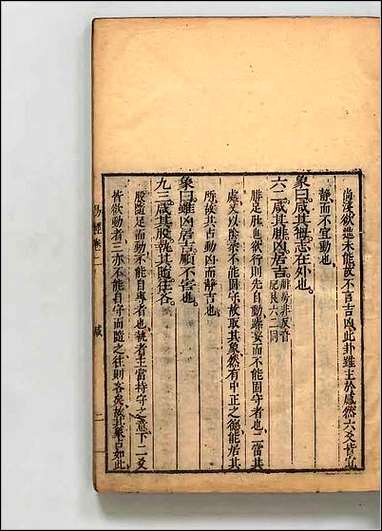 尚淺欲進未能故不言吉凶此卦雖主於感然六爻皆宜
靜而不宜動也
象曰咸其拇志在外也
六二咸其腓凶居吉
腓房非反音
肥艮六二同
腓足肚也欲行則先自動躁妄而不能固守者也二當其
處又以陰柔不能固守故取其象然有中正之德能居其
所故其占動凶而靜吉也
象曰雖凶居吉順不害也
九三咸其股執其隨往吝
股隨足而動不能自專者也執者主當持守之意下二爻
皆欲動者三亦不能自守而隨之往則吝矣故其象占如此
易經卷二
咸
二